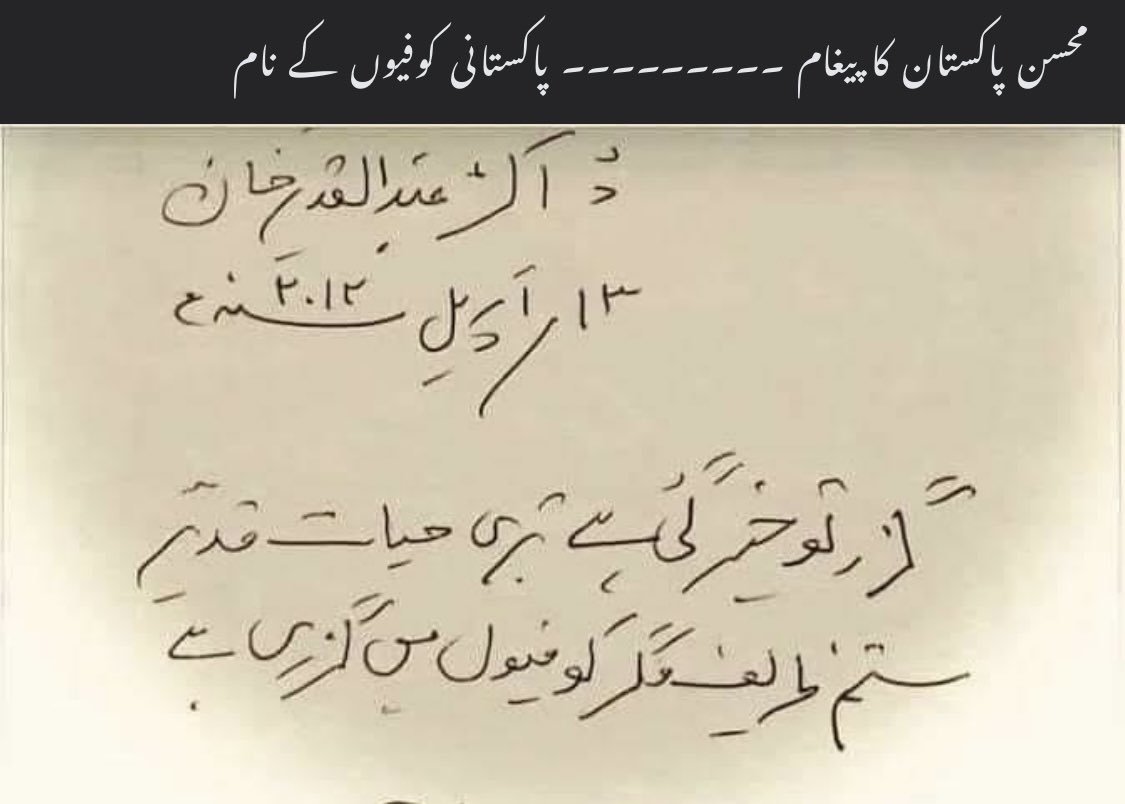 محسن پاکستان کا پیغام ۔۔۔۔۔۔۔۔۔ پاکستانی کوفیوں کے نام
ڈاکٹر عبدالقدیر خان
۱۳/اپریل ۲۰۱۲ سنہ ء
گزر تو خیر گئی ہے تیری حیات قدیر
ستم ظریف مگر کوفیوں میں گزری ہے